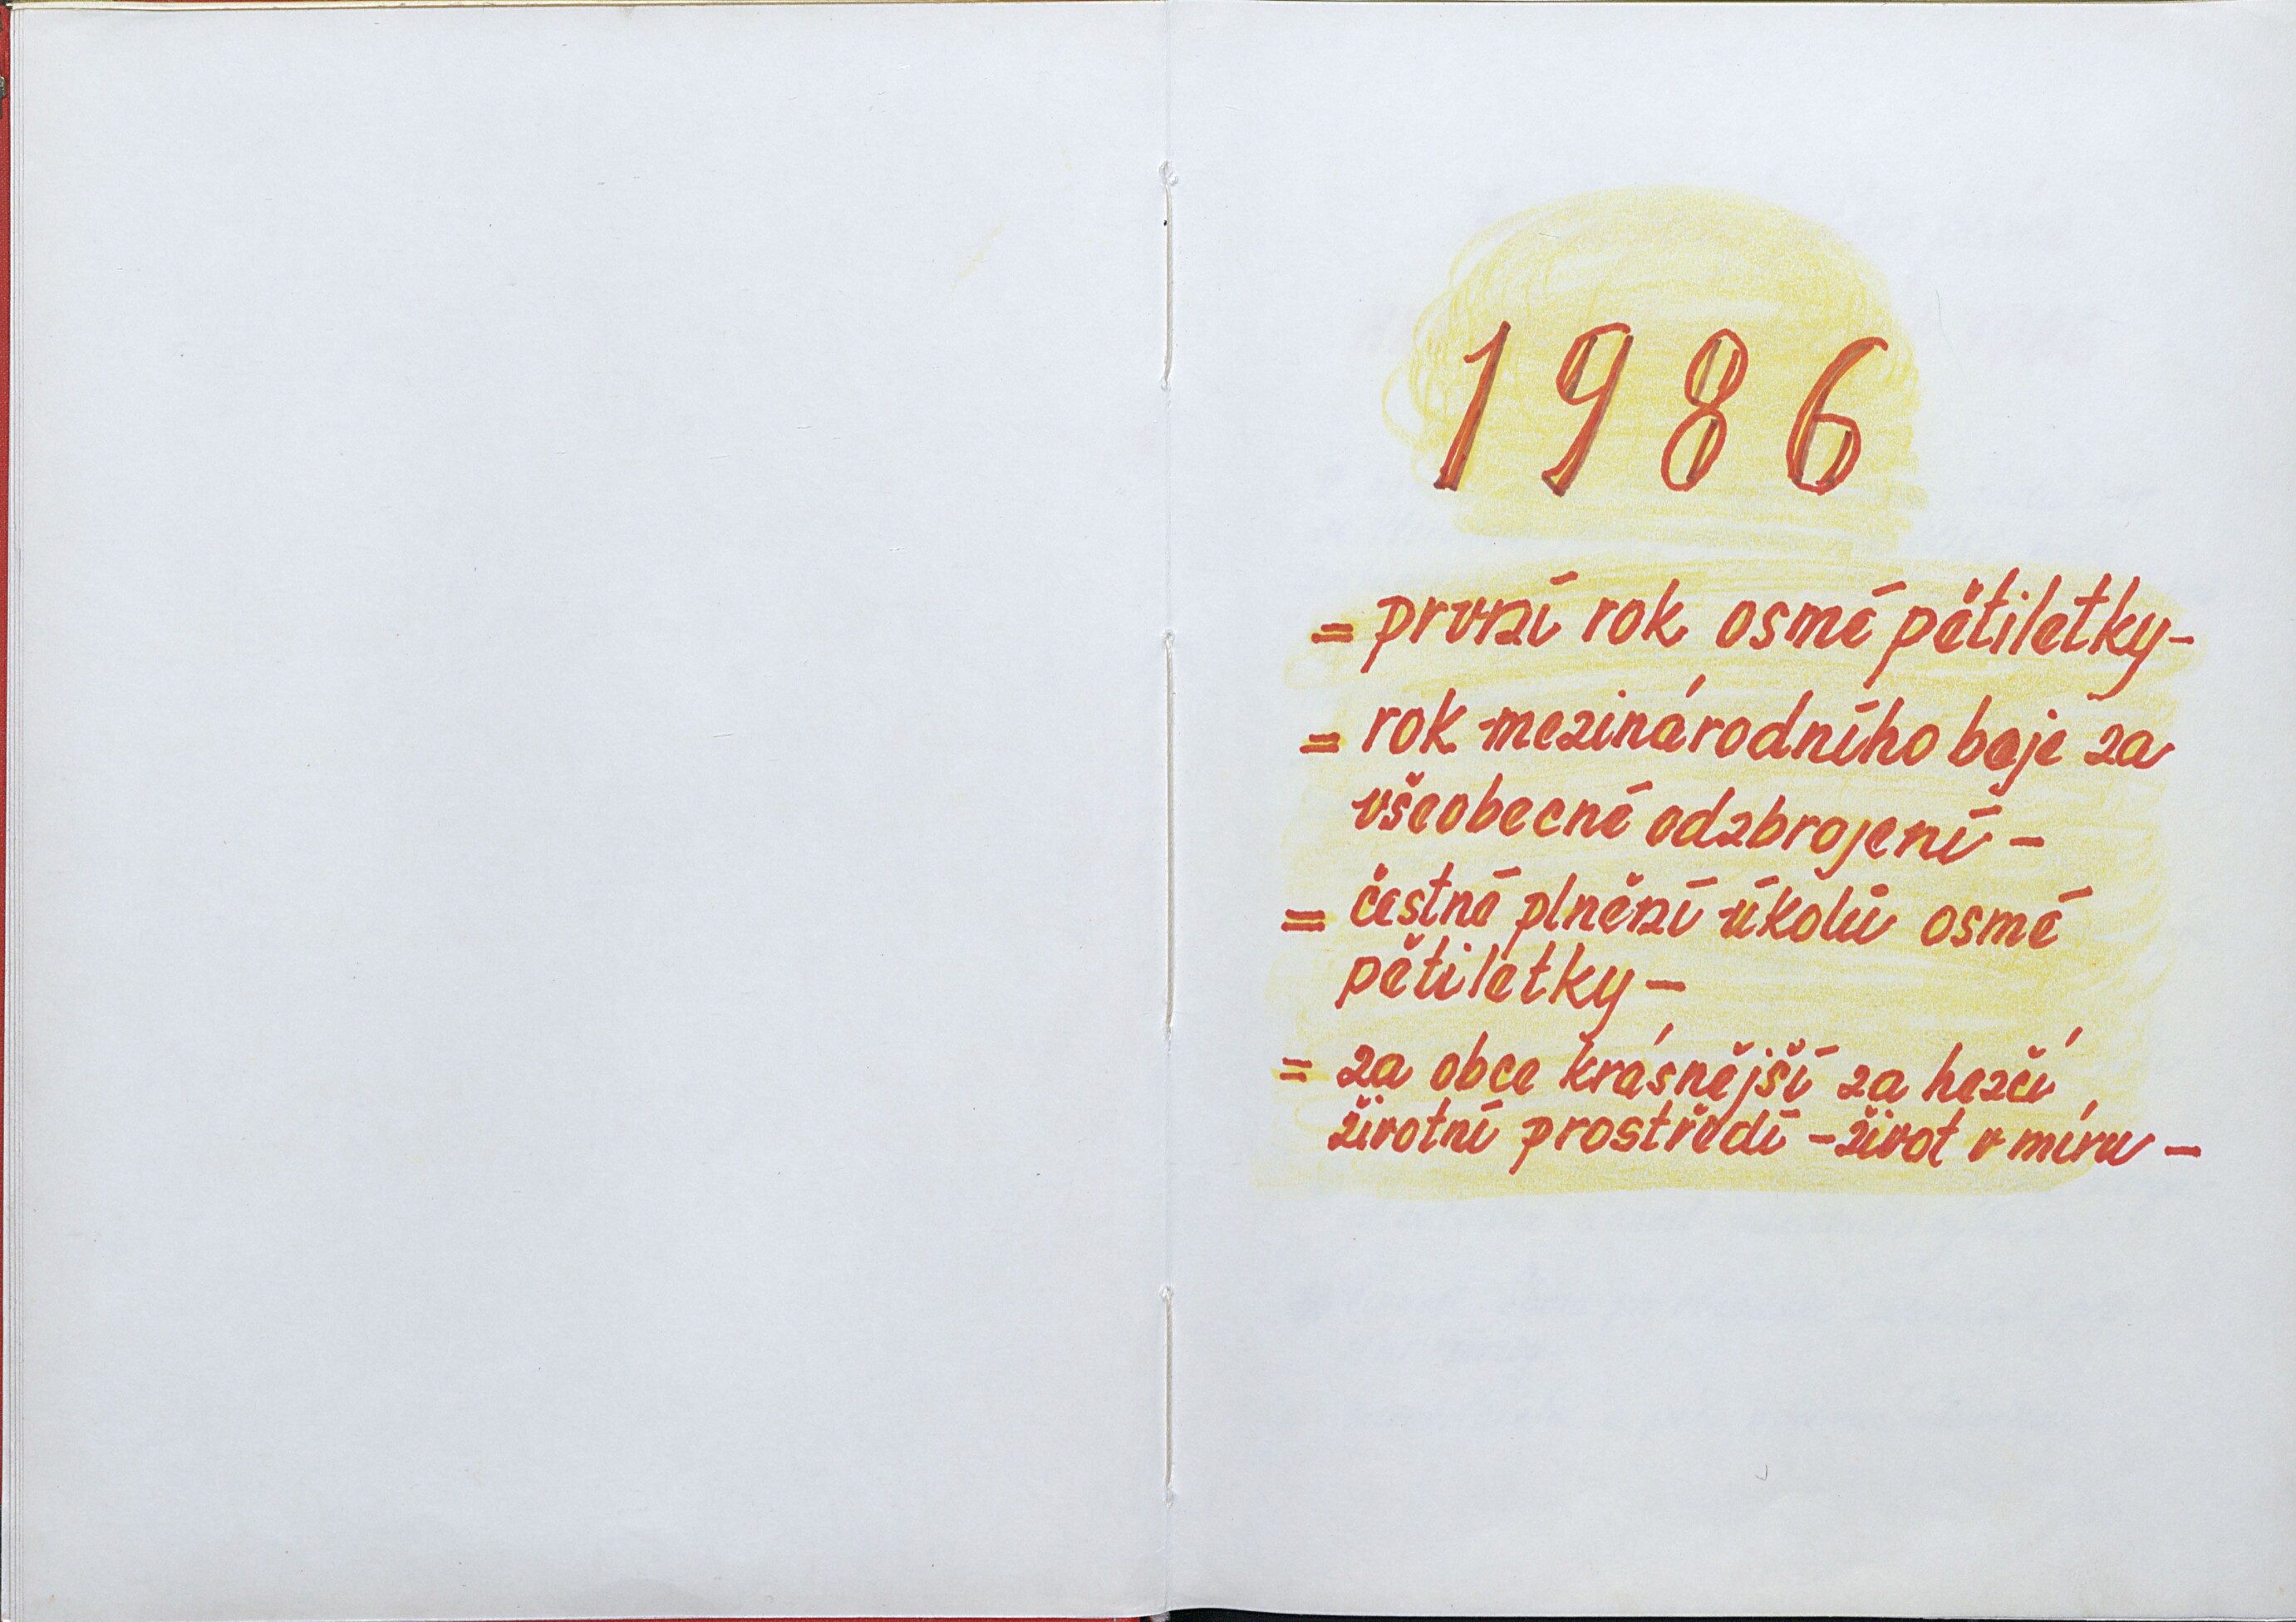 1986
= první rok osmé pětiletky-
= rok mezinárodního boje za
všeobecné odzbrojení -
= čestné plnění úkolů osmé
pětiletky -
= za obce krásnější za hezčí
životní prostředí - život v míru -